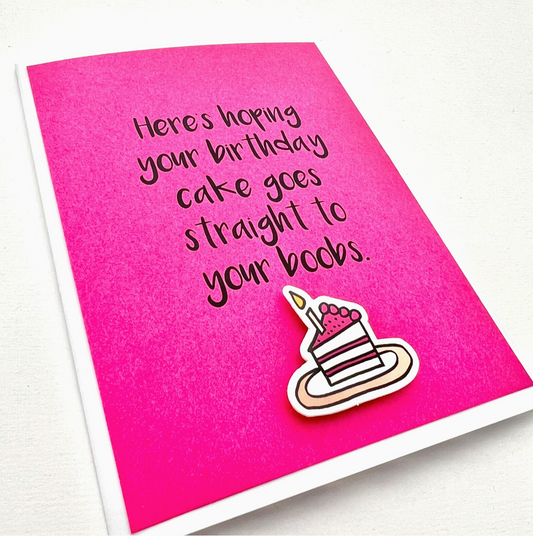 Here's hoping
your birthday
cake goes
straight to
your boobs.